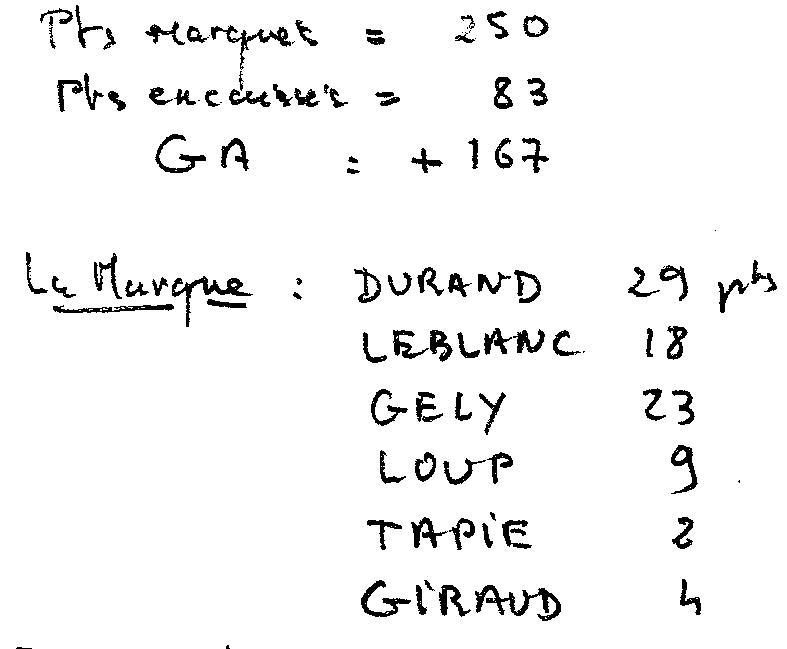 Pts Marquet = 250
Pts encaissés = 83
GA = + 167
La Marque : DURAND 29 pts
LEBLANC 18
GELY 23
LOUP 9
TAPIE 2
GIRAUD 4